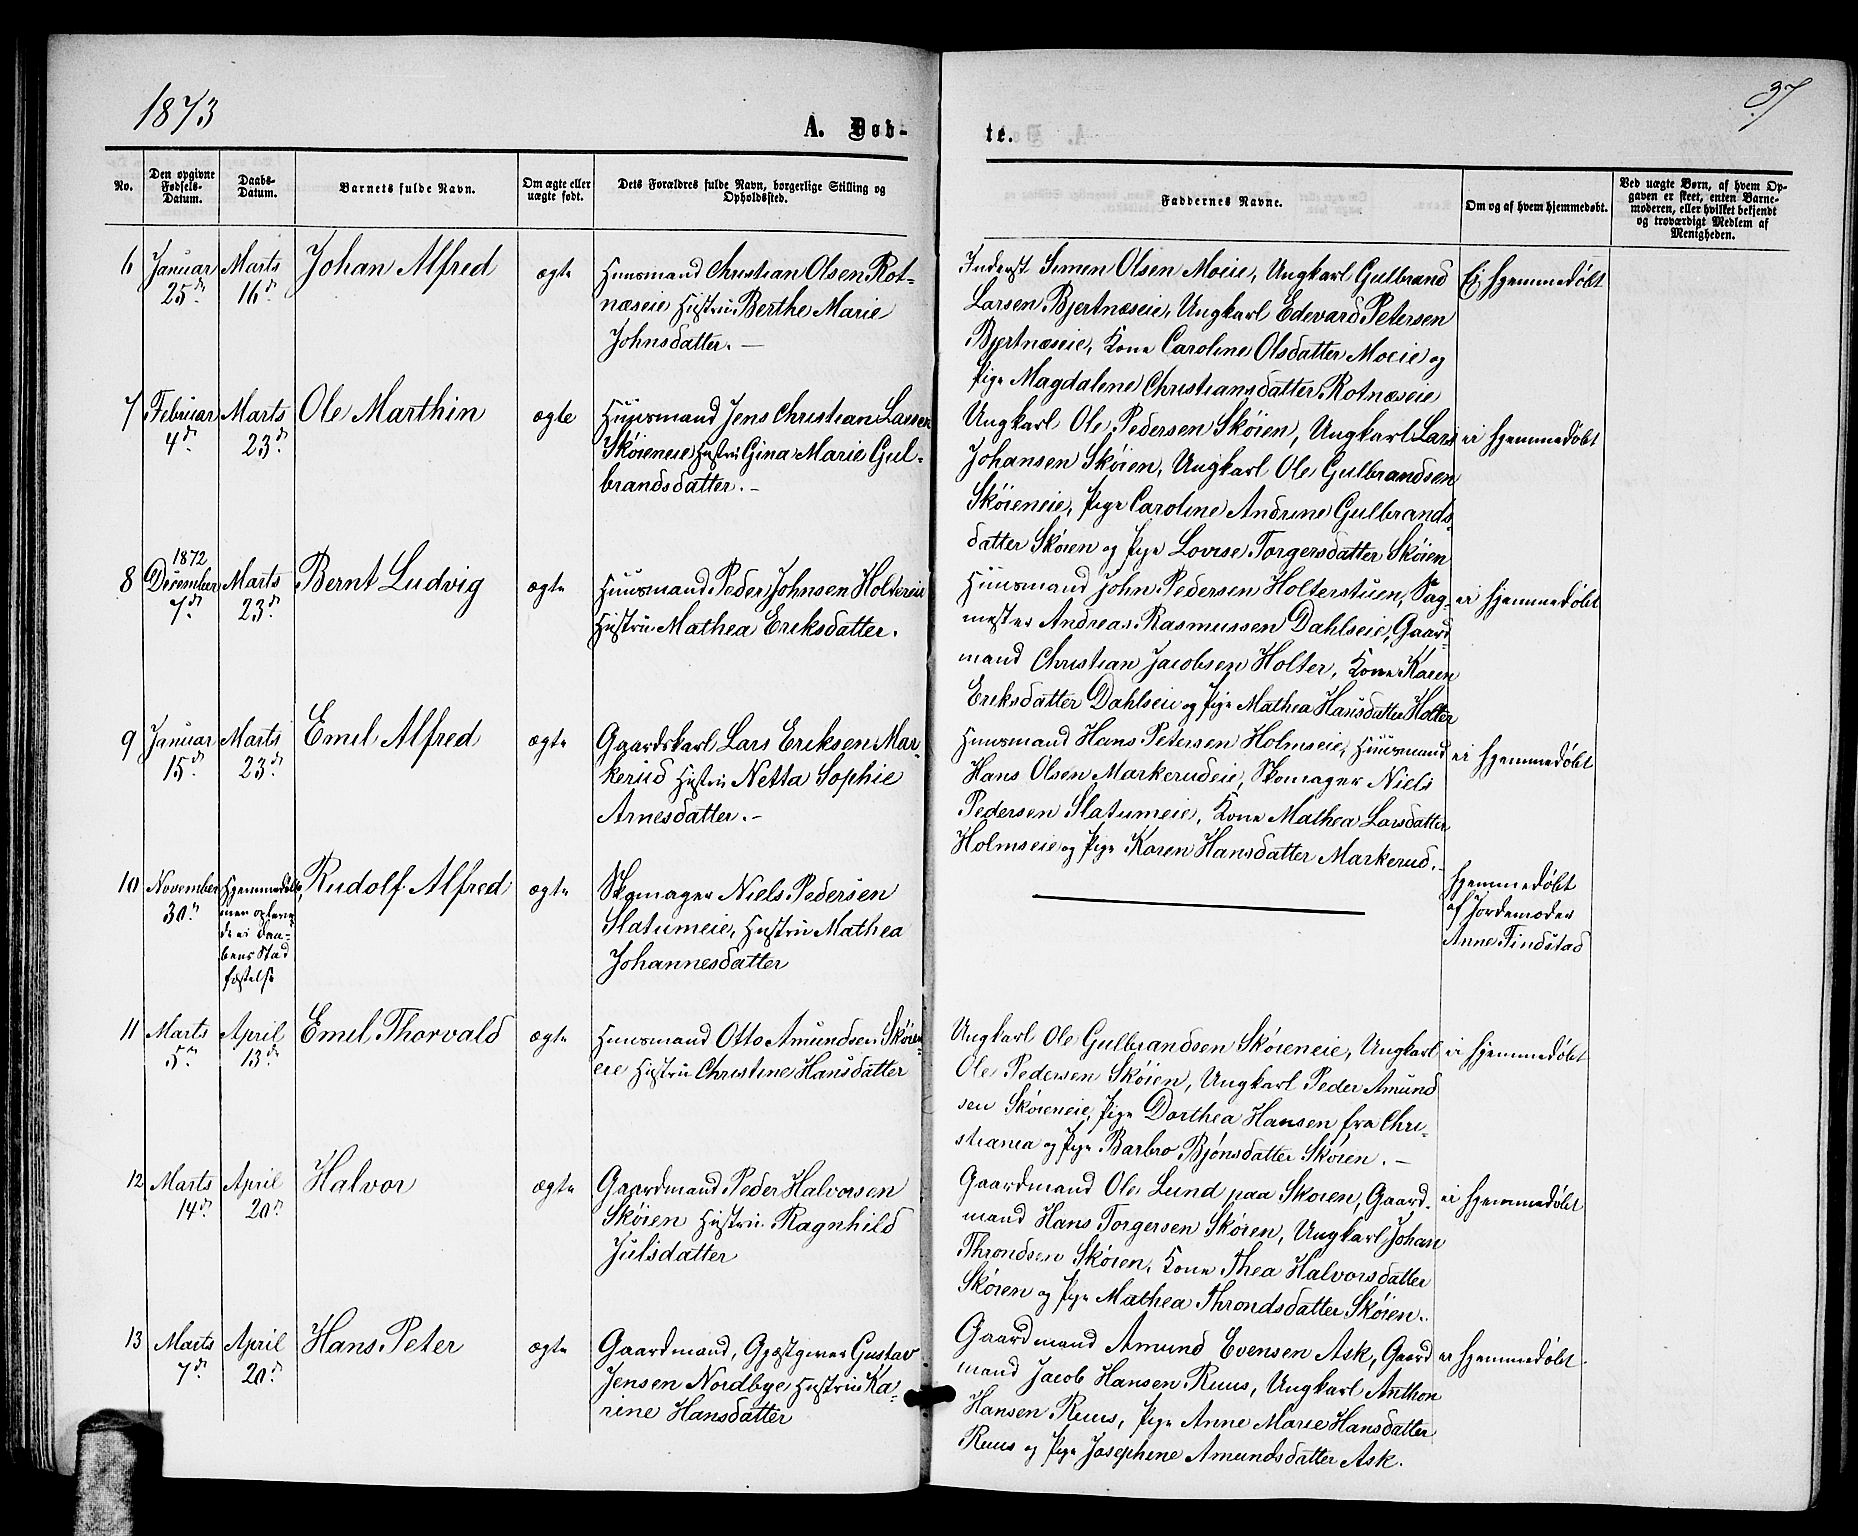 1873
37
A. Døb-
te.
No.
Den opgivne Fødsels-Datum.
Daabs-Datum.
Barnets fulde Navn.
Om ægte eller uægte født.
Dets Forældres fulde Navn, borgerlige Stilling og Opholdssted.
Faddernes Navne.
Om og af hvem hjemmedøbt.
Ved uægte Børn, af hvem Op-
gaven er skeet, enten Barne-
moderen, eller hvilket bekjendt
og troværdigt Medlem af
Menigheden.
6 Januar 25de Marts 16de Johan Alfred ægte
Huusmand Christian Olsen Rot-
næseie Hustru Berthe Marie
Johnsdatter. —
Inderst Simen Olsen Moeie, Ungkarl Gulbrand
Larsen Bjertnæseie, Ungkarl Edevard Petersen
Bjertnæseie, Kone Caroline Olsdatter Moeie og
Pige Magdalene Christiansdatter Rotnæseie
Ej hjemmedøbt
7 Februar 4de Marts 23de Ole Marthin ægte
Huusmand Jens Christian Larsen
Skøieneie Hustru Gina Marie Gul-
brandsdatter. –
Ungkarl Ole Pedersen Skøien, Ungkarl Lars
Johansen Skøien, Ungkarl Ole Gulbrandsen
Skøieneie, Pige Caroline Andrine Gulbrands-
datter Skøien og Pige Lovise Torgersdatter Skøien
ei hjemmedøbt
8 1872 December 7de Marts 23de Bernt Ludvig ægte
Huusmand Peder Johnsen Holtereie
Hustru Mathea Eriksdatter.
Huusmand John Pedersen Holterstuen, Sag-
mester Andreas Rasmussen Dahlseie, Gaard-
mand Christian Jacobsen Holter, Kone Karen
Eriksdatter Dahlseie og Pige Mathea Hansdatter Holter
ei hjemmedøbt
9 Januar 15de Marts 23de Emil Alfred ægte
Gaardskarl Lars Eriksen Mar-
kerud Hustru Netta Sophie
Arnesdatter. –
Huusmand Hans Petersen Holmseie, Huusmand
Hans Olsen Markerudeie, Skomager Niels
Pedersen Slatumeie, Kone Mathea Larsdatter
Holmseie og Pige Karen Hansdatter Markerud. –
ei hjemmedøbt
10 November 30te
Hjemmedøbt,
men oplevede ei Daa-
bens Stad
fæstelse
Rudolf Alfred ægte
Skomager Niels Pedersen
Slatumeie, Hustru Mathea
Johannesdatter
hjemmedøbt
af Jordemoder
Anne Findstad
11 Marts 5te April 13de Emil Thorvald ægte
Huusmand Otto Amundsen Skøien-
eie Hustru Christine Hansdatter
Ungkarl Ole Gulbrandsen Skøieneie, Ungkarl
Ole Pedersen Skøien, Ungkarl Peder Amund
sen Skøieneie, Pige Dorthea Hansen fra Chri-
stiania og Pige Barbro Bjønsdatter Skøien. –
ei hjemmedøbt
12 Marts 14de April 20de Halvor ægte
Gaardmand Peder Halvorsen
Skøien Hustru Ragnhild
Julsdatter
Gaardmand Ole Lund paa Skøien, Gaard-
mand Hans Torgersen Skøien, Ungkarl Johan
Throndsen Skøien, Kone Thea Halvorsdatter
Skøien og Pige Mathea Throndsdatter Skøien.
ei hjemmedøbt
13 Marts 7de April 20de Hans Peter ægte
Gaardmand, Gjæstgiver Gustav
Jensen Nordbye Hustru Ka-
rine Hansdatter
Gaardmand Amund Evensen Ask, Gaard
mand Jacob Hansen Ruus, Ungkarl Anthon
Hansen Ruus, Pige Anne Marie Hansdatter
Ruus og Pige Josephine Amundsdatter Ask.
ei hjemmedøbt.